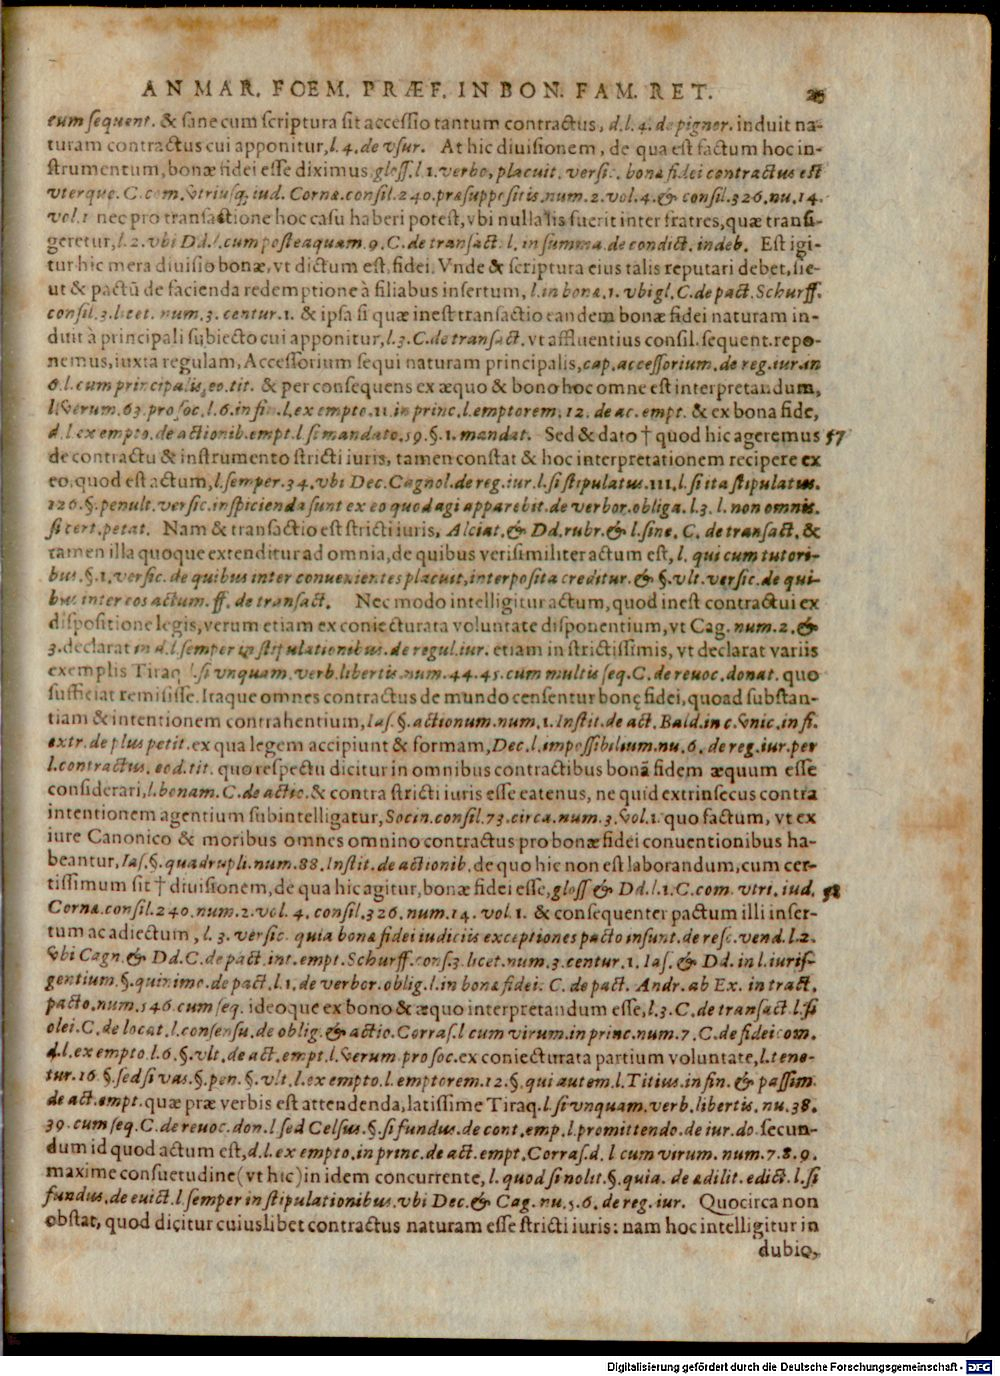 AN MAR. FOEM. PRÆF. IN BON. FAM. RET. 25
eum sequent. & sane cum scriptura sit accessio tantum contractus, d.l.4. de pignor. induit na-
turam contractus cui apponitur, l.4. de vsur. At hic diuisionem, de qua est factum hoc in-
strumentum, bonæ fidei esse diximus. gloss. l.1. verbo, placuit. versic. bonæ fidei contractus est
vterque. C. com. vtriusq; iud. Corne. consil. 240. præsuppositis. num. 2. vol. 4. & consil. 326. nu. 14.
vol. 1 nec pro transactione hoc casu haberi potest, vbi nulla lis fuerit inter fratres, quæ transi-
geretur, l.2. vbi Dd. l. cum posteaquam. 9. C. de transact. l. in summa. de condict. indeb. Est igi-
tur hic mera diuisio bonæ, vt dictum est, fidei. Vnde & scriptura eius talis reputari debet, sic-
ut & pactū de facienda redemptione à filiabus insertum, l. in bonæ. 1. vbi gl. C. de pact. Schurff.
consil. 3. licet. num. 3. centur. 1. & ipsa si quæ inest transactio eandem bonæ fidei naturam in-
duit à principali subiecto cui apponitur, l.3. C. de transact. vt affluentius consil. sequent. repo-
nemus, iuxta regulam, Accessorium sequi naturam principalis, cap. accessorium. de reg. iur. in
6. l. cum principalis, eo. tit. & per consequens ex æquo & bono hoc omne est interpretandum,
l. verum. 63. pro soc. l. 6. in fin. l. ex empto. 11. in princ. l. emptorem. 12. de ac. empt. & ex bona fide,
d. l. ex empto. de actionib. empt. l. si mandato. 59. §. 1. mandat. Sed & dato † quod hic ageremus 57
de contractu & instrumento stricti iuris, tamen constat & hoc interpretationem recipere ex
eo, quod est actum, l. semper. 34. vbi Dec. Cagnol. de reg. iur. l. si stipulatus. 111, l. si ita stipulatus.
126. §. penult. versic. inspicienda sunt ex eo quod agi apparebit. de verbor. obliga. l. 3. l. non omnis.
si cert. petat. Nam & transactio est stricti iuris, Alciat. & Dd. rubr. & l. sine. C. de transact. &
tamen illa quoque extenditur ad omnia, de quibus verisimiliter actum est, l. qui cum tutori-
bus. §. 1. versic. de quibus inter conuenientes placuit, interposita creditur. & §. vlt. versic. de qui-
bus inter eos actum. ff. de transact. Nec modo intelligitur actum, quod inest contractui ex
dispositione legis, verum etiam ex coniecturata voluntate disponentium, vt Cag. num. 2. &
3. declarat in d. l. semper in stipulationibus. de regul. iur. etiam in strictissimis, vt declarat variis
exemplis Tiraq. l. si vnquam. verb. libertis. num. 44. 45. cum multis seq. C. de reuoc. donat. quo
sufficiat remisisse. Itaque omnes contractus de mundo censentur bonę fidei, quoad substan-
tiam & intentionem contrahentium, Ias. §. actionum. num. 1. Instit. de act. Bald. in c. vnic. in fi.
extr. de plus petit. ex qua legem accipiunt & formam, Dec. l. impossibilium. nu. 6. de reg. iur. per
l. contractus. eod. tit. quo respectu dicitur in omnibus contractibus bonā fidem æquum esse
considerari, l. bonam. C. de actio. & contra stricti iuris esse eatenus, ne quid extrinsecus contra
intentionem agentium subintelligatur, Socin. consil. 73. circa. num. 3. vol. 1. quo factum, vt ex
iure Canonico & moribus omnes omnino contractus pro bonæ fidei conuentionibus ha-
beantur, Ias. §. quadrupli. num. 88. Instit. de actionib. de quo hic non est laborandum, cum cer-
tissimum sit † diuisionem, de qua hic agitur, bonæ fidei esse, gloss. & Dd. l. 1. C. com. vtri. iud. 58
Corne. consil. 240. num. 2. vol. 4. consil. 326. num. 14. vol. 1. & consequenter pactum illi inser-
tum ac adiectum, l. 3. versic. quia bonæ fidei iudiciis exceptiones pacto insunt. de resc. vend. l. 2.
vbi Cagn. & Dd. C. de pact. int. empt. Schurff. cons. 3. licet. num. 3. centur. 1. Ias. & Dd. in l. iuris-
gentium. §. quinimo. de pact. l. 1. de verbor. oblig. l. in bonæ fidei. C. de pact. Andr. ab Ex. in tract.
pacto. num. 146. cum seq. ideoque ex bono & æquo interpretandum esse, l. 3. C. de transact. l. si
olei. C. de locat. l. consensu. de oblig. & actio. Corras. l. cum virum. in princ. num. 7. C. de fideicom.
d. l. ex empto. l. 6. §. vlt. de act. empt. l. verum. pro soc. ex coniecturata partium voluntate, l. tene-
tur. 16 §. sed si vas. §. pen. §. vlt. l. ex empto. l. emptorem. 12. §. qui autem. l. Titius. in fin. & passim.
de act. empt. quæ præ verbis est attendenda, latissime Tiraq. l. si vnquam. verb. libertis. nu. 38.
39. cum seq. C. de reuoc. don. l. sed Celsus. §. si fundus. de cont. emp. l. promittendo. de iur. do. secun-
dum id quod actum est, d. l. ex empto. in princ. de act. empt. Corras. d. l. cum virum. num. 7. 8. 9.
maxime consuetudine (vt hic) in idem concurrente, l. quod si nolit. §. quia. de ædilit. edict. l. si
fundus. de euict. l. semper in stipulationibus. vbi Dec. & Cag. nu. 5. 6. de reg. iur. Quocirca non
obstat, quod dicitur cuiuslibet contractus naturam esse stricti iuris: nam hoc intelligitur in
dubio,
Digitalisierung gefördert durch die Deutsche Forschungsgemeinschaft - DFG